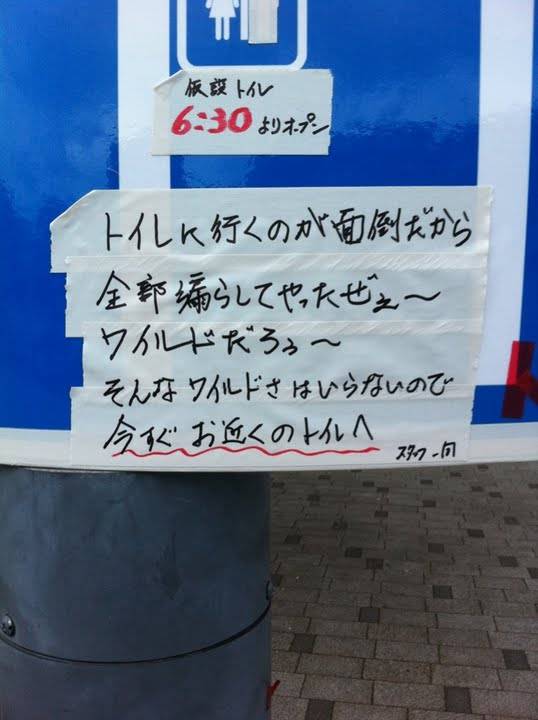 仮設トイレ
6:30よりオープン
トイレに行くのが面倒だから
全部漏らしてやったぜぇ〜
ワイルドだろぅ〜
そんなワイルドさはいらないので
今すぐお近くのトイレへ
スタッフ一同